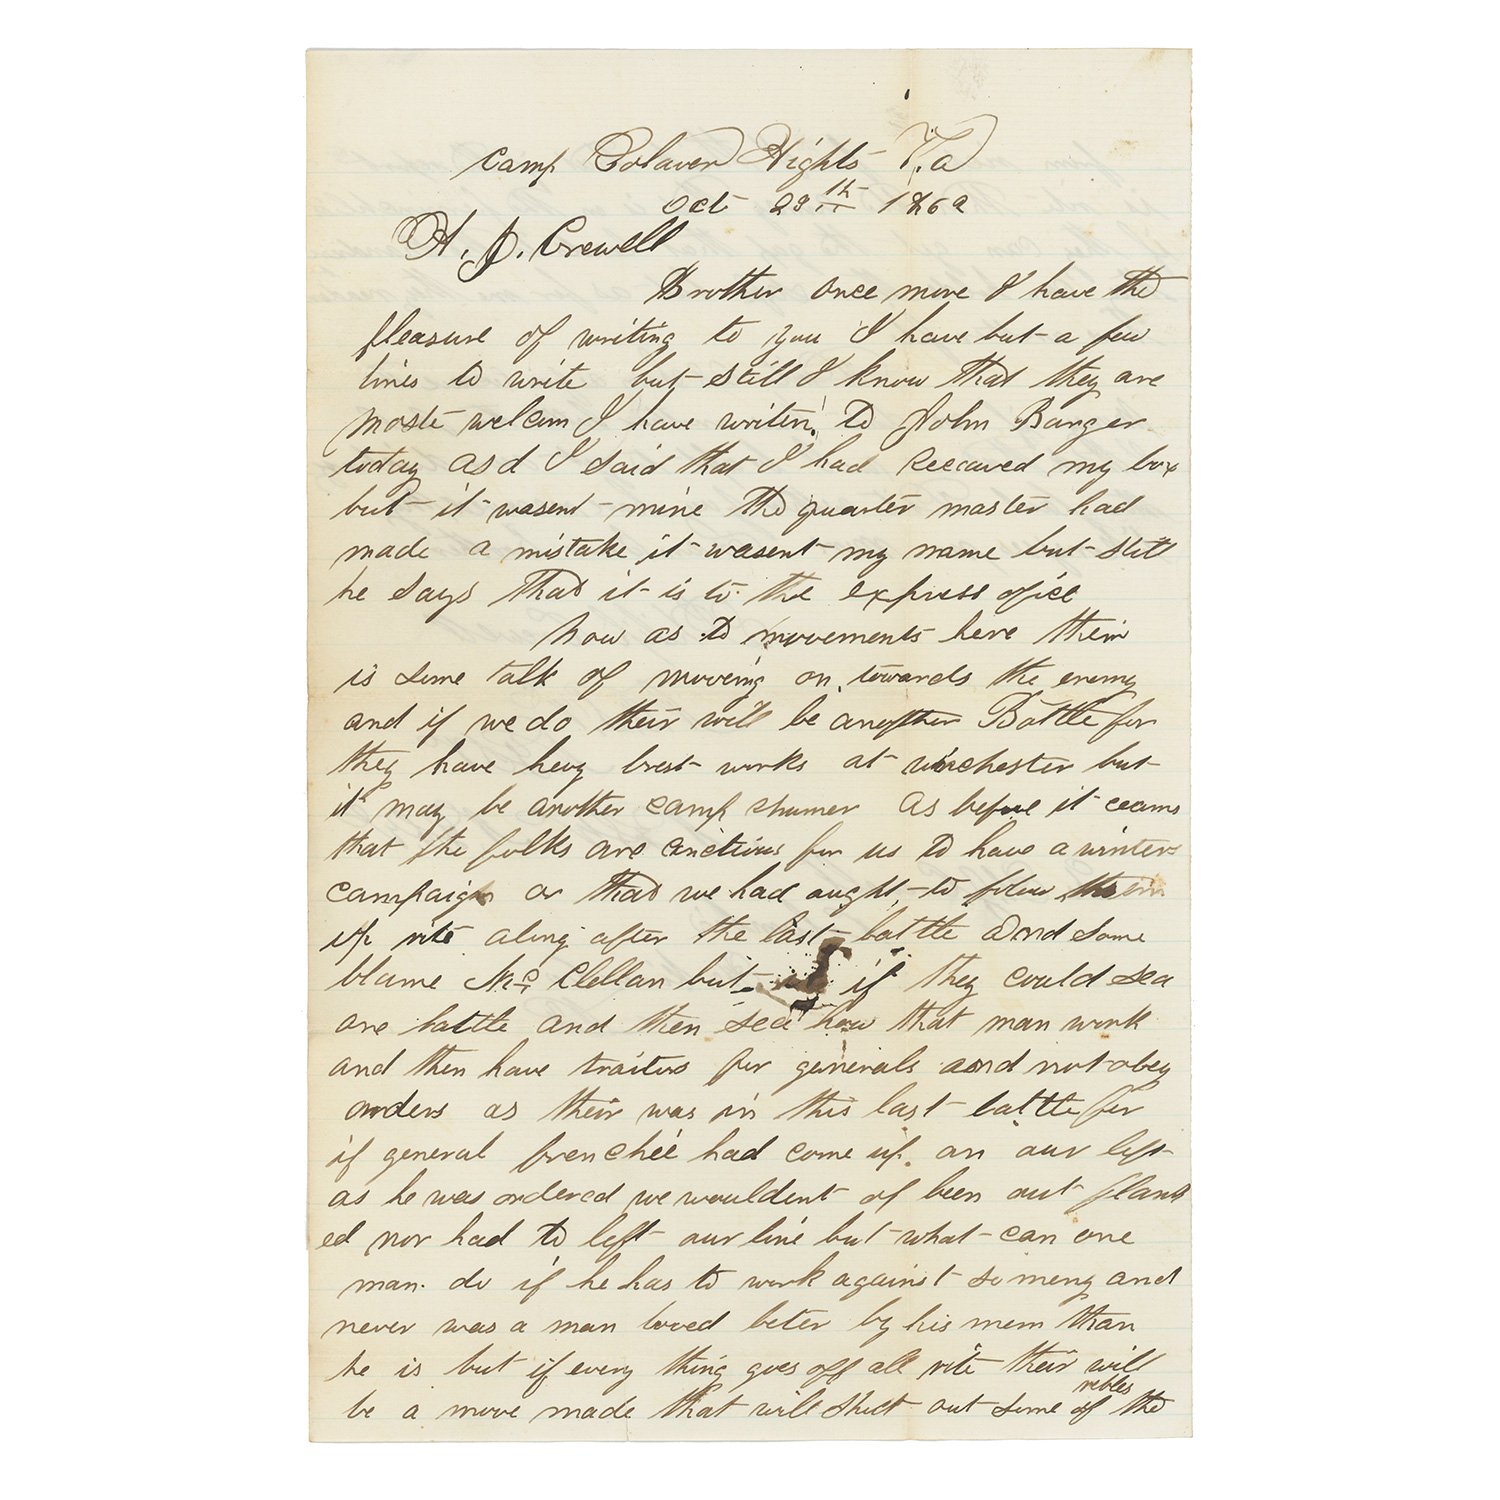 Camp Bolaver Hights V.a
Oct 28th 1862
H. J. Crewell
Brother once more I have the
pleasure of writing to you I have but a few
lines to write but still I know that they are
moste welcom I have writen to John Barger
today asd I said that I had Reccaved my box
but it wasent mine the quarter master had
made a mistake it wasent my name but still
he says that it is to the express ofice
now as to movements here their
is some talk of moveing on towards the enemy
and if we do their will be another Battle for
they have hevy brest works at winchester but
it may be another camp shumer as before it ceams
that the folks are for us to have a winter
campaign or that we had aught to folow them
up rite along after the last battle and some
blame Mc Clellan but if they could sea
are battle and then sea how that man work
and then have traitors for generals and not obey
orders as their was in this last battle for
if general frenchie had come up on our left
as he was ordered we wouldent of been out flank
ed nor had to left our line but what can one
man do if he has to work against so meny and
never was a man loved beter by his mem than
he is but if every thing goes off all rite their will
be a move made that will shut out some of the
rebles